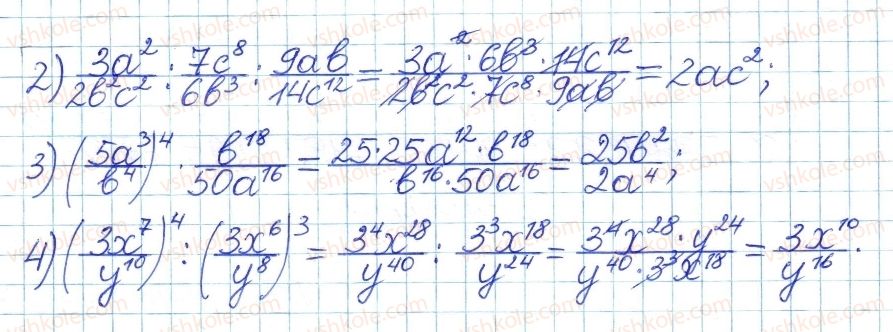 2) 3a²/2b²c² : 7c⁸/6b³ : 9ab/14c¹² = 3a² · 6b³ · 14c¹²/2b²c² · 7c⁸ · 9ab = 2ac²;
3) (5a³/b⁴)⁴ · b¹⁸/50a¹⁶ = 25·25a¹² · b¹⁸/b¹⁶ · 50a¹⁶ = 25b²/2a⁴;
4) (3x⁷/y¹⁰)⁴ : (3x⁶/y⁸)³ = 3⁴x²⁸/y⁴⁰ : 3³x¹⁸/y²⁴ = 3⁴x²⁸ · y²⁴/y⁴⁰ · 3³x¹⁸ = 3x¹⁰/y¹⁶.
vshkole.com